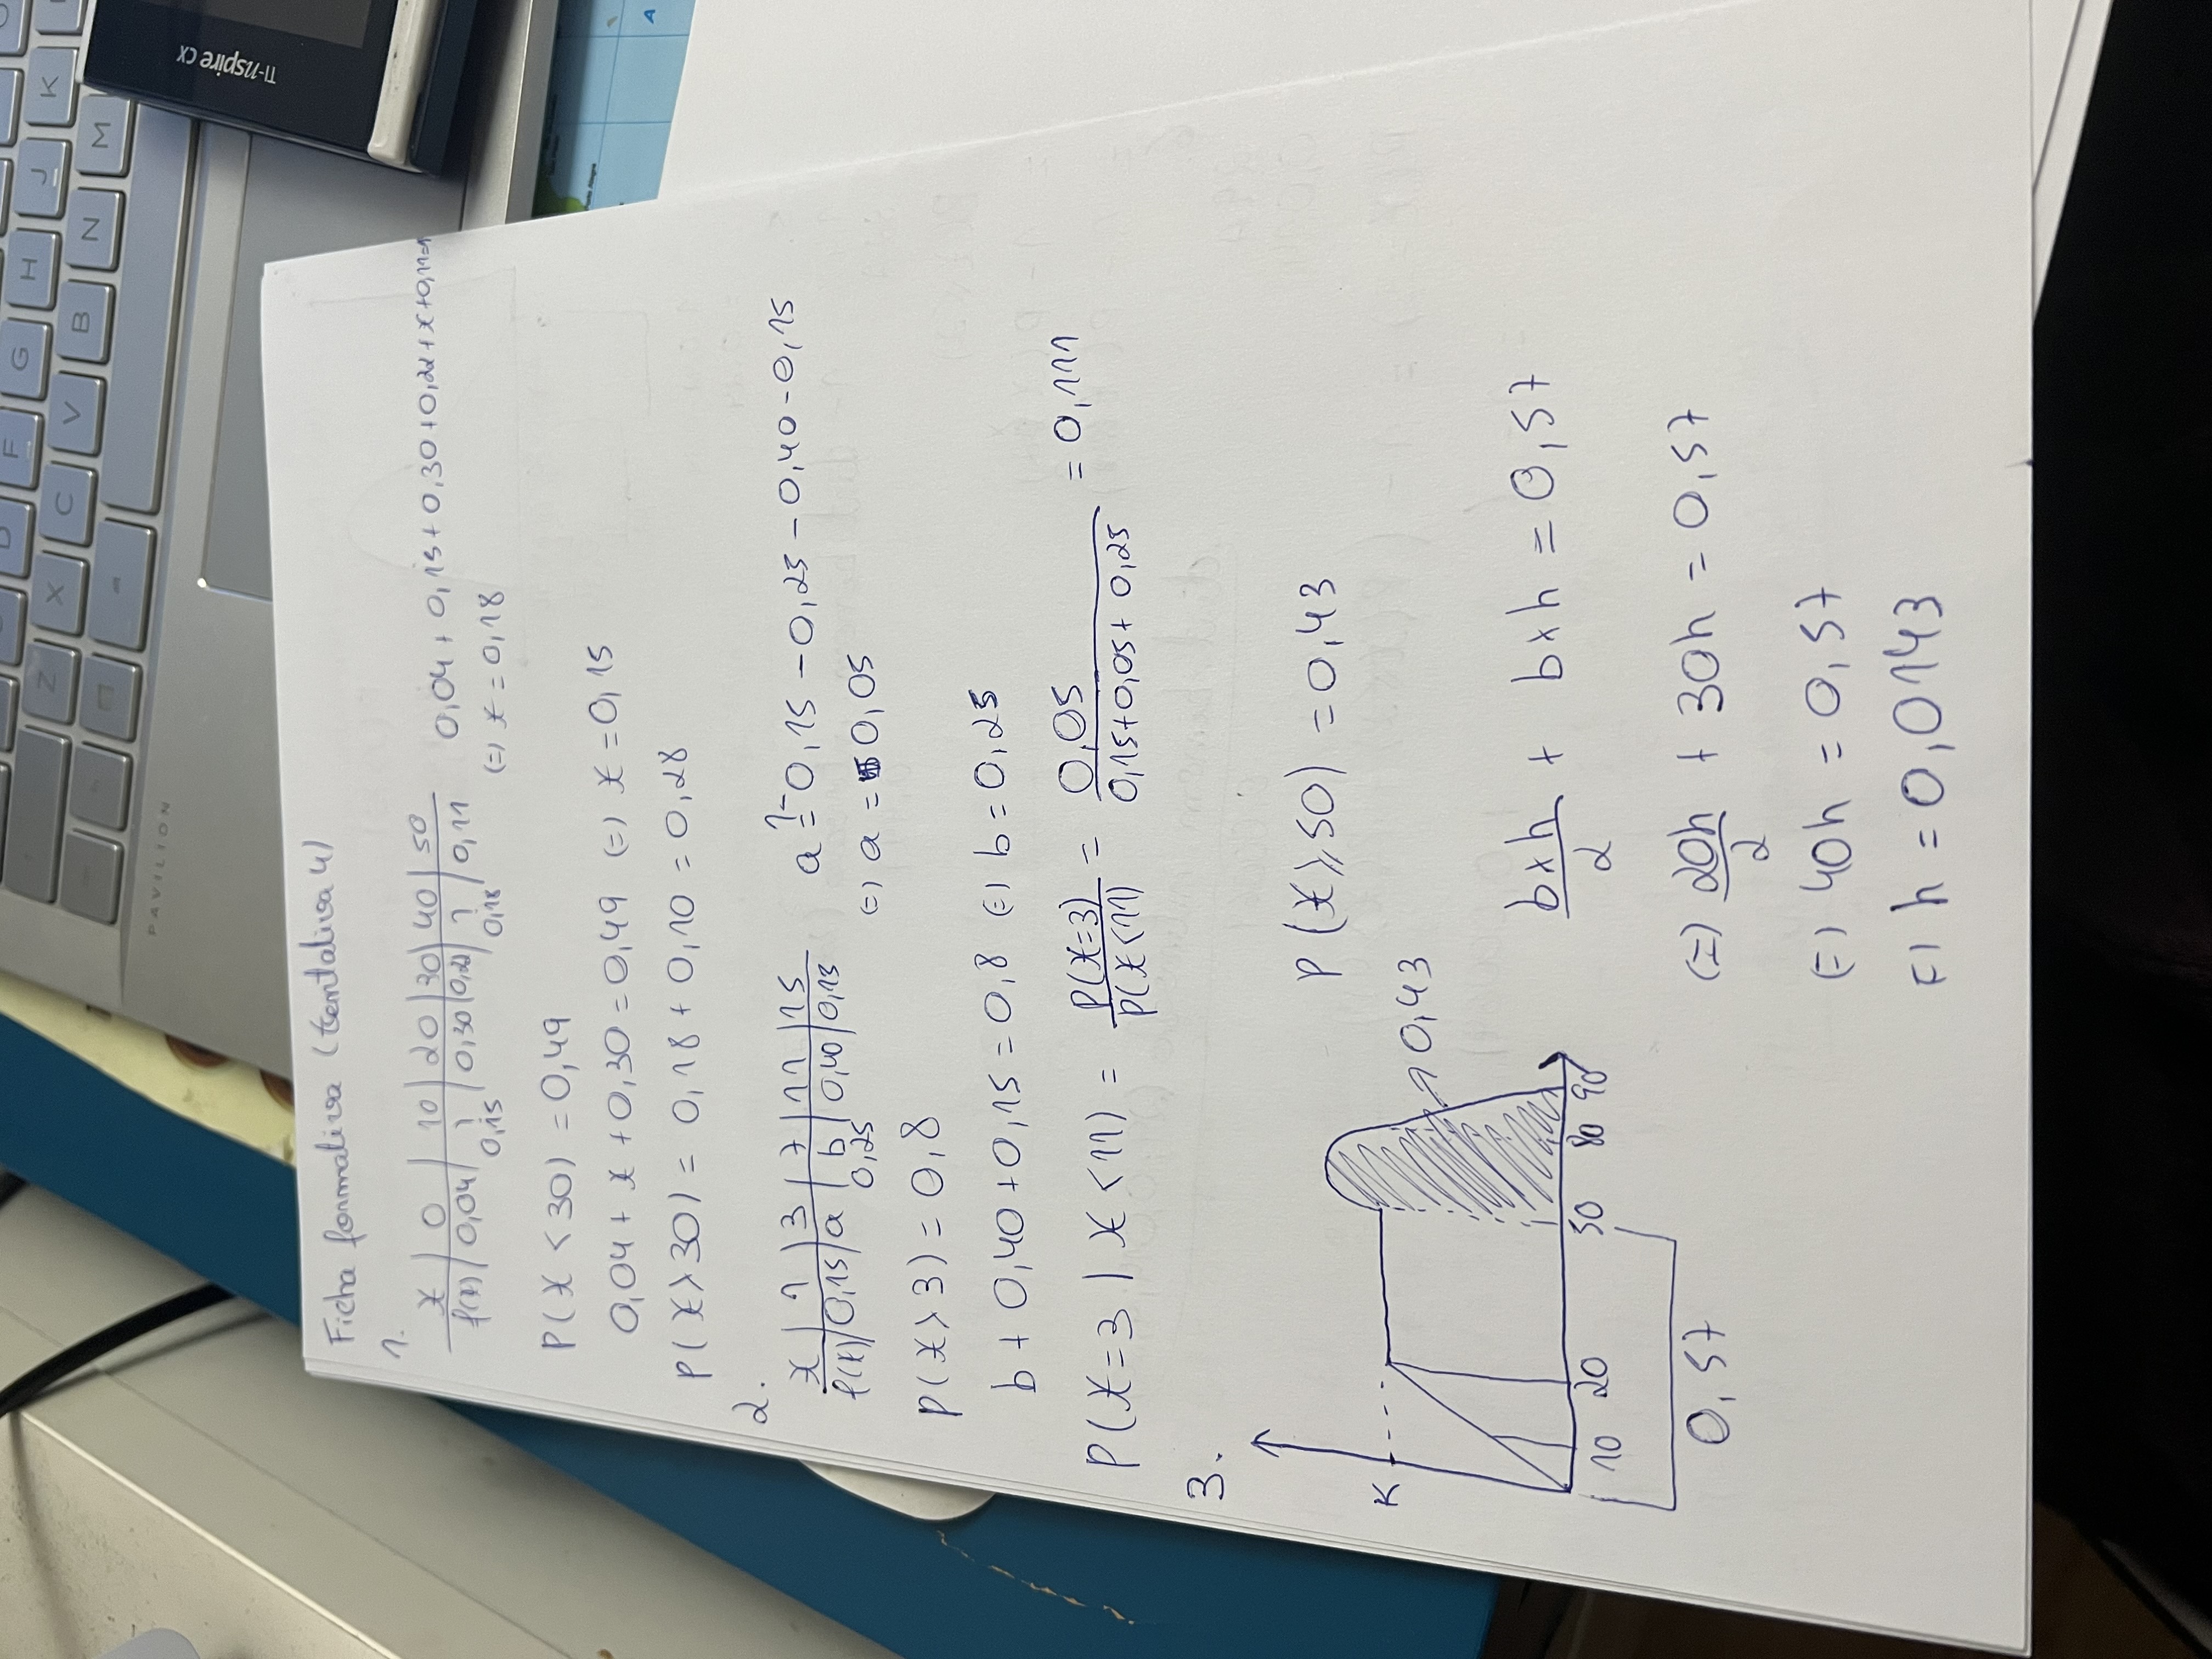 D F G H J K
Z X C V B N M
PAVILION
TI-nspire CX
Porto Alegre
A
Ficha formativa (tentativa 4)
1.
x | 0 | 10 | 20 | 30 | 40 | 50
f(x) | 0,04 | ? | 0,30 | 0,22 | ? | 0,11
0,15 0,18
0,04 + 0,15 + 0,30 + 0,22 + x + 0,11 = 1
(=) x = 0,18
P(X < 30) = 0,49
0,04 + x + 0,30 = 0,49 (=) x = 0,15
P(X > 30) = 0,18 + 0,10 = 0,28
2.
x | 1 | 3 | 7 | 11 | 15
f(x) | 0,15 | a | b | 0,40 | 0,15
0,25
a = 1 - 0,15 - 0,25 - 0,40 - 0,15
(=) a = 0,05
P(X > 3) = 0,8
b + 0,40 + 0,15 = 0,8 (=) b = 0,25
P(X = 3 | X < 11) = P(X=3) / P(X<11) = 0,05 / 0,15+0,05+0,25 = 0,111
3.
P(X ⩾ 50) = 0,43
K
0,43
10 20 50 80 90
0,57
b×h / 2 + b×h = 0,57
(=) 20h / 2 + 30h = 0,57
(=) 40h = 0,57
(=) h = 0,0143